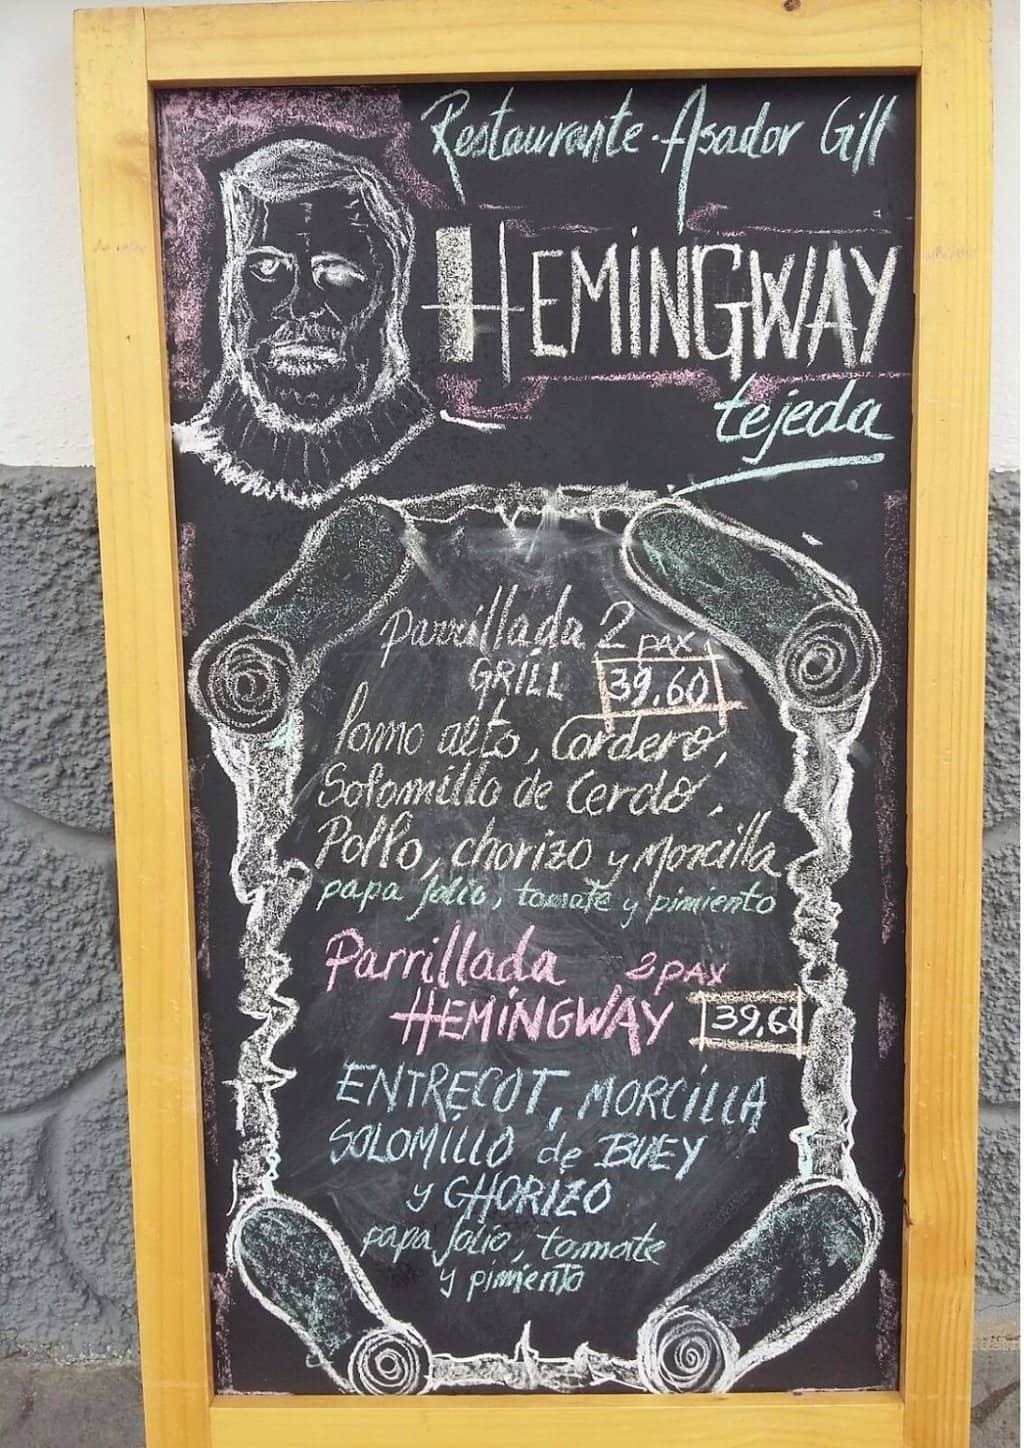 Restaurante-Asador Gill
HEMINGWAY
tejeda
Parrillada 2 PAX
GRILL 39,60
lomo alto, Cordero,
Solomillo de Cerdo,
Pollo, chorizo y Morcilla
papa folio, tomate y pimiento
Parrillada 2 PAX
HEMINGWAY 39,60
ENTRECOT, MORCILLA
SOLOMILLO de BUEY
y CHORIZO
papa folio, tomate
y pimiento